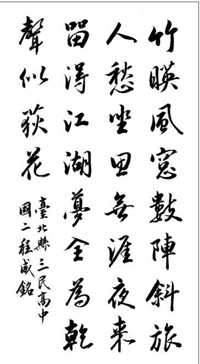 竹暎風窓數陣斜旅
人愁坐思無涯夜来
留得江湖夢全為乾
聲似荻花
臺北縣三民高中
國二程威銘